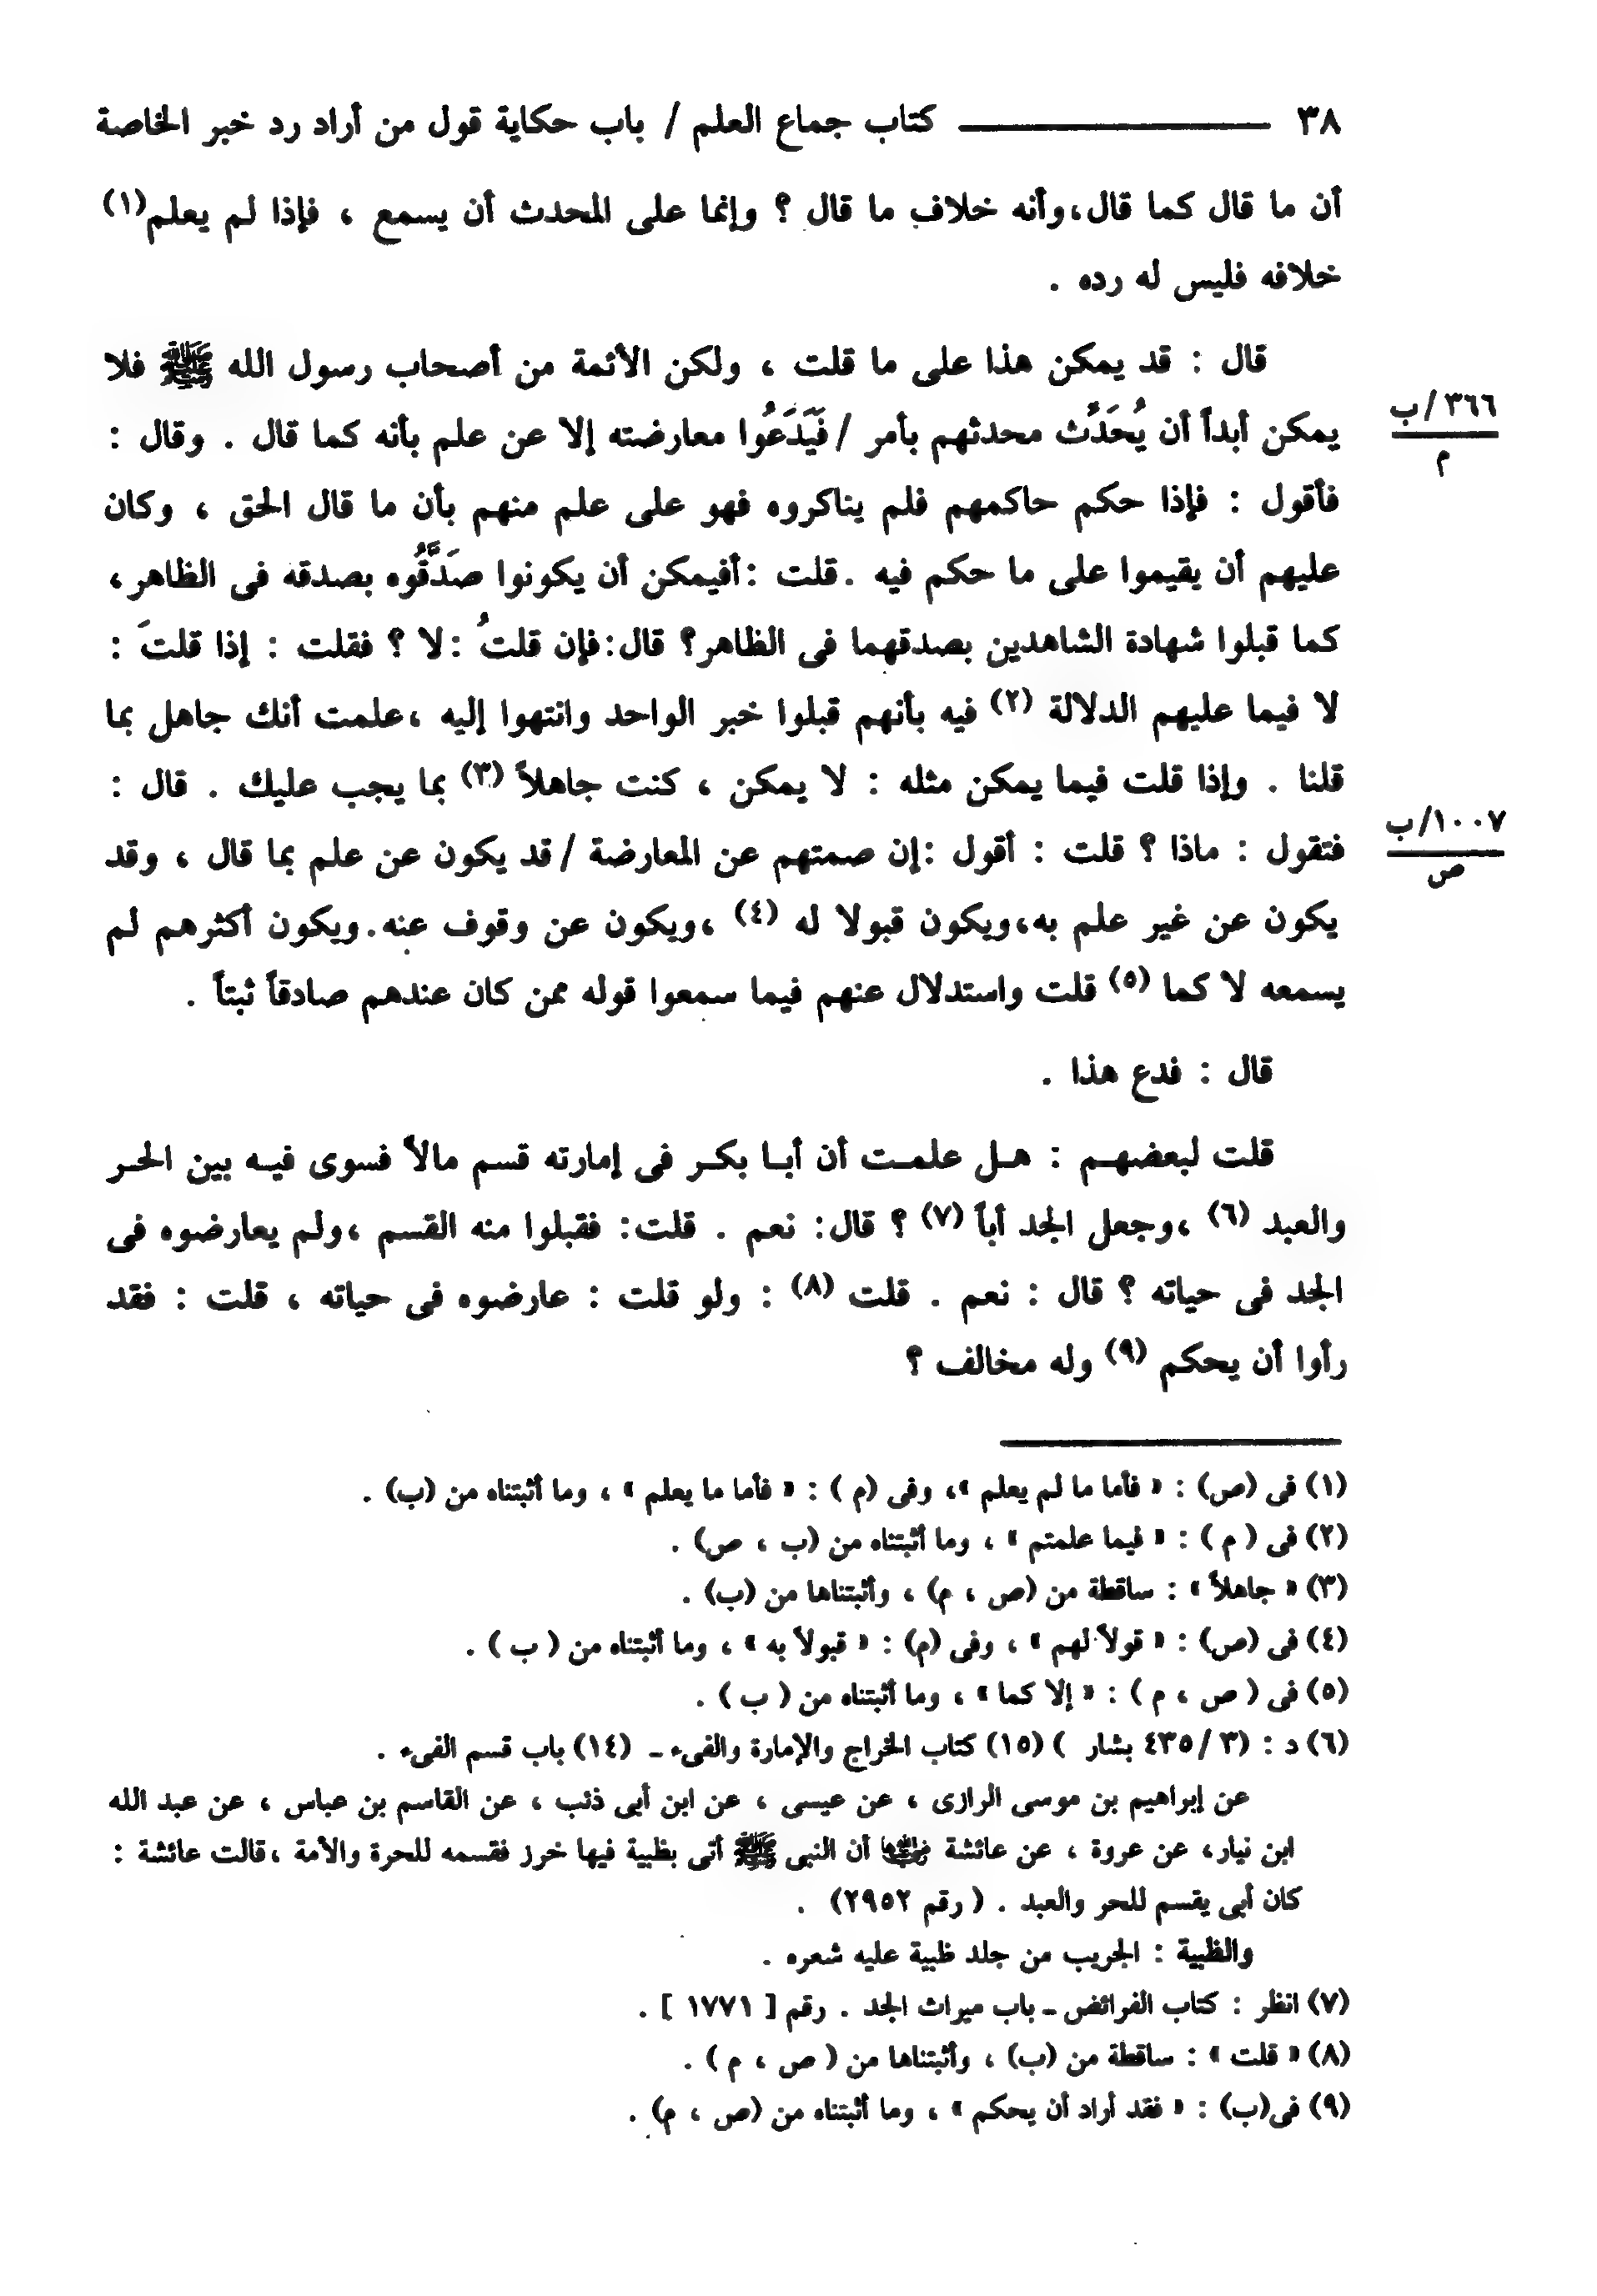 ٣٨ كتاب جماع العلم / باب حكاية قول من أراد رد خبر الخاصة
أن ما قال كما قال،وأنه خلاف ما قال ؟ وإنما على المحدث أن يسمع ، فإذا لم يعلم(١)
خلافه فليس له رده .
قال : قد يمكن هذا على ما قلت ، ولكن الأئمة من أصحاب رسول الله ﷺ فلا
٣٦٦/ب
م
يمكن أبداً أن يُحَدِّث محدثهم بأمر /فَيَدَعُوا معارضته إلا عن علم بأنه كما قال . وقال :
فأقول : فإذا حكم حاكمهم فلم يناكروه فهو على علم منهم بأن ما قال الحق ، وكان
عليهم أن يقيموا على ما حكم فيه .قلت :أفيمكن أن يكونوا صَدَّقُوه بصدقه فى الظاهر،
كما قبلوا شهادة الشاهدين بصدقهما فى الظاهر؟ قال:فإن قلتُ :لا ؟ فقلت : إذا قلتَ :
لا فيما عليهم الدلالة (٢) فيه بأنهم قبلوا خبر الواحد وانتهوا إليه ،علمت أنك جاهل بما
قلنا . وإذا قلت فيما يمكن مثله : لا يمكن ، كنت جاهلاً (٣) بما يجب عليك . قال :
١٠٠٧/ب
ص
فتقول : ماذا ؟ قلت : أقول :إن صمتهم عن المعارضة /قد يكون عن علم بما قال ، وقد
يكون عن غير علم به،ويكون قبولا له (٤) ،ويكون عن وقوف عنه.ويكون أكثرهم لم
يسمعه لا كما (٥) قلت واستدلال عنهم فيما سمعوا قوله ممن كان عندهم صادقاً ثبتاً .
قال : فدع هذا .
قلت لبعضهم : هل علمت أن أبا بكر فى إمارته قسم مالاً فسوى فيه بين الحر
والعبد (٦) ،وجعل الجد أباً (٧) ؟ قال: نعم . قلت: فقبلوا منه القسم ،ولم يعارضوه فى
الجد فى حياته ؟ قال : نعم . قلت (٨) : ولو قلت : عارضوه فى حياته ، قلت : فقد
رأوا أن يحكم (٩) وله مخالف ؟
(١) فى (ص) : « فأما ما لم يعلم »، وفى (م ) : « فأما ما يعلم » ، وما أثبتناه من (ب) .
(٢) فى ( م ) : « فيما علمتم » ، وما أثبتناه من (ب ، ص) .
(٣) « جاهلاً » : ساقطة من (ص ، م) ، وأثبتناها من (ب) .
(٤) فى (ص) : « قولاً لهم » ، وفى (م) : « قبولاً به » ، وما أثبتناه من ( ب ) .
(٥) فى ( ص ، م ) : « إلا كما » ، وما أثبتناه من ( ب ) .
(٦) د : (٣/ ٤٣٥ بشار ) (١٥) كتاب الخراج والإمارة والفىء ـ (١٤) باب قسم الفىء .
عن إبراهيم بن موسى الرازى ، عن عيسى ، عن ابن أبى ذئب ، عن القاسم بن عباس ، عن عبد الله
ابن نيار، عن عروة ، عن عائشة رضي الله عنها أن النبى ﷺ أتى بظبية فيها خرز فقسمه للحرة والأمة ،قالت عائشة :
كان أبى يقسم للحر والعبد . ( رقم ٢٩٥٢) .
والظبية : الجريب من جلد ظبية عليه شعره .
(٧) انظر : كتاب الفرائض ـ باب ميراث الجد . رقم [ ١٧٧١ ] .
(٨) « قلت » : ساقطة من (ب) ، وأثبتناها من ( ص ، م ) .
(٩) فى(ب) : « فقد أراد أن يحكم » ، وما أثبتناه من (ص ، م) .